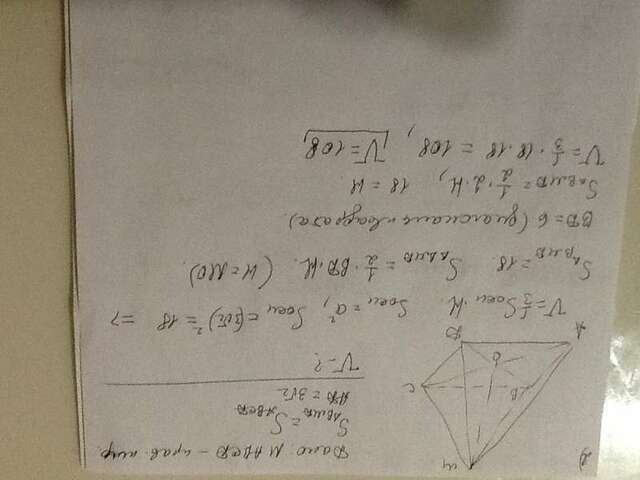 2)
Дано: MABCD – прав. пир.
S_ΔBMD = S_ABCD
AB = 3√2
V - ?
M
C
B
O
D
A
V = 1/3 Sосн · H. Sосн = a², Sосн = (3√2)² = 18 =>
S_ΔBMD = 18. S_ΔBMD = 1/2 · BD · H. (H = MO)
BD = 6 (диагональ квадрата).
S_ΔBMD = 1/2 · 2 · H, 18 = H
V = 1/3 · 18 · 18 = 108, V = 108